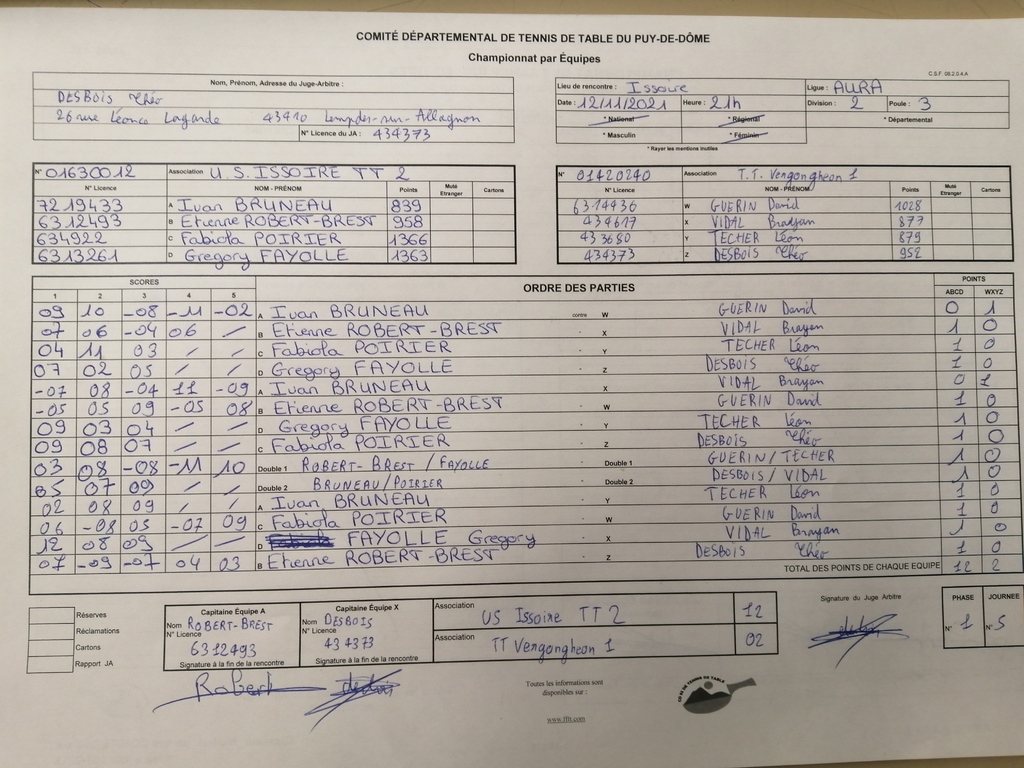 COMITÉ DÉPARTEMENTAL DE TENNIS DE TABLE DU PUY-DE-DÔME
Championnat par Équipes
C.S.F 08.2.0.4.A
Nom, Prénom, Adresse du Juge-Arbitre :
DESBOIS Théo
26 rue Léonce Lagarde 43410 Lempdes-sur-Allagnon
N° Licence du JA : 434373
Lieu de rencontre : Issoire Ligue : AURA
Date : 12/11/2021 Heure : 21h Division : 2 Poule : 3
* National * Régional * Départemental
* Masculin * Féminin
* Rayer les mentions inutiles
N° 01630012 Association U.S. ISSOIRE TT 2
N° Licence NOM - PRÉNOM Points Muté Etranger Cartons
7219433 A Ivan BRUNEAU 839
6312493 B Etienne ROBERT-BREST 958
634922 C Fabiola POIRIER 1366
6313261 D Gregory FAYOLLE 1363
N° 01420240 Association T.T. Vergongheon 1
N° Licence NOM - PRÉNOM Points Muté Etranger Cartons
6314936 W GUERIN David 1028
434617 X VIDAL Brayan 877
433680 Y TECHER Léon 879
434373 Z DESBOIS Théo 952
SCORES ORDRE DES PARTIES POINTS
1 2 3 4 5 ABCD WXYZ
09 10 -08 -11 -02 A Ivan BRUNEAU contre W GUERIN David 0 1
07 06 -04 06 / B Etienne ROBERT-BREST - X VIDAL Brayan 1 0
04 11 03 / / C Fabiola POIRIER - Y TECHER Léon 1 0
07 02 05 / / D Gregory FAYOLLE - Z DESBOIS Théo 1 0
-07 08 -04 11 -09 A Ivan BRUNEAU - X VIDAL Brayan 0 1
-05 05 09 -05 08 B Etienne ROBERT-BREST - W GUERIN David 1 0
09 03 04 / / D Gregory FAYOLLE - Y TECHER Léon 1 0
09 08 07 / / C Fabiola POIRIER - Z DESBOIS Théo 1 0
03 08 -08 -11 10 Double 1 ROBERT-BREST / FAYOLLE Double 1 GUERIN/TECHER 1 0
05 07 09 / / Double 2 BRUNEAU/POIRIER Double 2 DESBOIS/VIDAL 1 0
02 08 09 / / A Ivan BRUNEAU - Y TECHER Léon 1 0
06 -08 05 -07 09 C Fabiola POIRIER - W GUERIN David 1 0
12 08 09 / / D FAYOLLE Gregory - X VIDAL Brayan 1 0
07 -09 -07 04 03 B Etienne ROBERT-BREST - Z DESBOIS Théo 1 0
TOTAL DES POINTS DE CHAQUE EQUIPE 12 2
Réserves
Réclamations
Cartons
Rapport JA
Capitaine Équipe A
Nom ROBERT-BREST
N° Licence
6312493
Signature à la fin de la rencontre
Robert
Capitaine Équipe X
Nom DESBOIS
N° Licence
434373
Signature à la fin de la rencontre
Association US Issoire TT 2 12
Association TT Vergongheon 1 02
Signature du Juge Arbitre
PHASE JOURNEE
N° 1 N° 5
Toutes les informations sont
disponibles sur :
www.fftt.com
CD 63 DE TENNIS DE TABLE